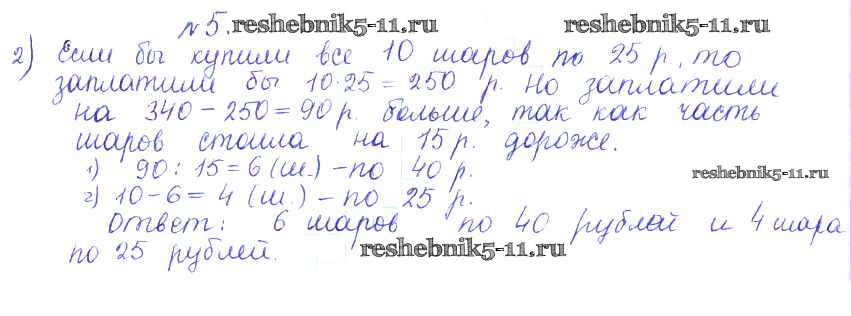 №5. reshebnik5-11.ru reshebnik5-11.ru
2) Если бы купили все 10 шаров по 25 р, то
заплатили бы 10·25=250 р. Но заплатили
на 340-250=90 р. больше, так как часть
шаров стоила на 15 р. дороже.
1) 90:15=6 (ш.) - по 40 р.
reshebnik5-11.ru
2) 10-6=4 (ш.) - по 25 р.
Ответ: 6 шаров по 40 рублей и 4 шара
по 25 рублей. reshebnik5-11.ru